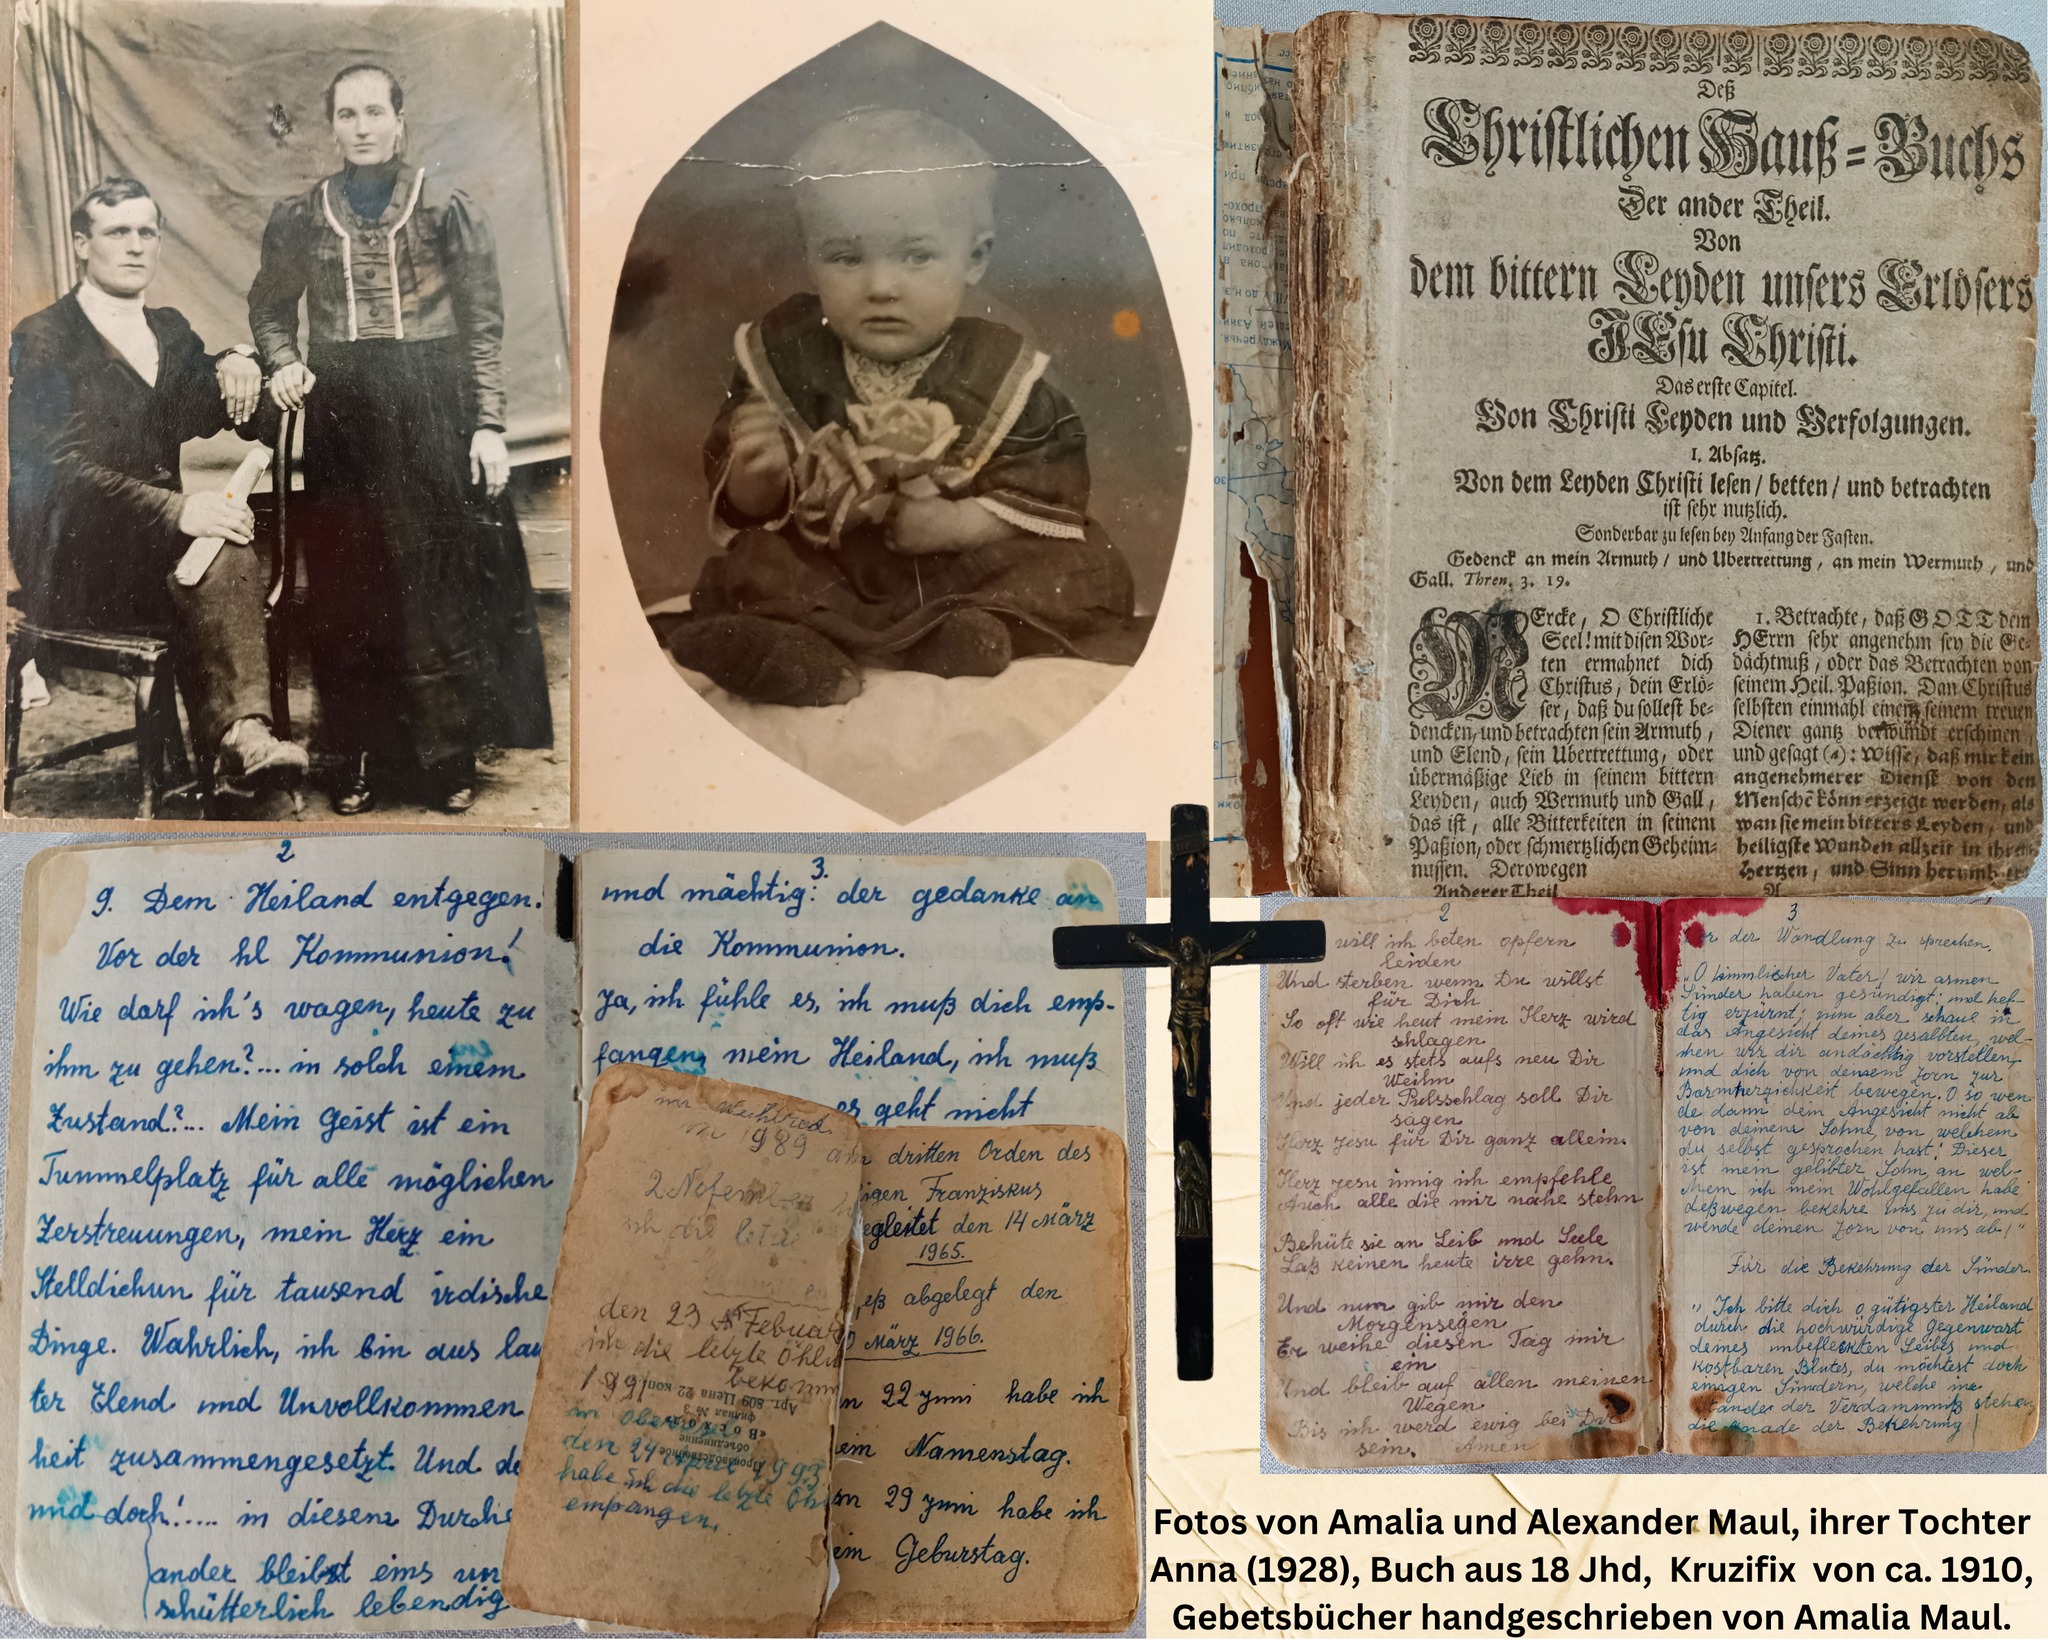 Deß
Christlichen Hauß=Buchs
Der ander Theil.
Von
dem bittern Leyden unsers Erlösers
JEsu Christi.
Das erste Capitel.
Von Christi Leyden und Verfolgungen.
1. Absatz.
Von dem Leyden Christi lesen / betten / und betrachten
ist sehr nutzlich.
Sonderbar zu lesen bey Anfang der Fasten.
Gedenck an mein Armuth / und Ubertrettung, an mein Wermuth, und
Gall. Thren. 3. 19.
MErcke, O Christliche
Seel! mit disen Wor-
ten ermahnet dich
Christus, dein Erlö-
ser, daß du sollest be-
dencken, und betrachten sein Armuth,
und Elend, sein Ubertrettung, oder
übermäßige Lieb in seinem bittern
Leyden, auch Wermuth und Gall,
das ist, alle Bitterkeiten in seinem
Paßion, oder schmertzlichen Geheim-
nussen. Derowegen
Anderer Theil
1. Betrachte, daß GOTT dem
HErrn sehr angenehm sey die Ge-
dächtnuß, oder das Betrachten von
seinem Heil. Paßion. Dan Christus
selbsten einmahl einem seinem treuen
Diener gantz verwundt erschinen,
und gesagt (a): Wisse, daß mir kein
angenehmerer Dienst von den
Menschē könn erzeigt werden, als
wan sie mein bitters Leyden, und
heiligste Wunden allzeit in ihrem
Hertzen, und Sinn herumb
A
2
9. Dem Heiland entgegen!
Vor der hl Kommunion!
Wie darf ich's wagen, heute zu
ihm zu gehen?... in solch einem
Zustand?... Mein Geist ist ein
Tummelplatz für alle möglichen
Zerstreuungen, mein Herz ein
Stelldichun für tausend irdische
Dinge. Wahrlich, ich bin aus lau
ter Elend und Unvollkommen
heit zusammengesetzt. Und de
und doch!..... in diesem Durche
ander bleibst eins un
schütterlich lebendig
3.
und mächtig: der gedanke an
die Kommunion.
Ja, ich fühle es, ich muß dich emp-
fangen, mein Heiland, ich muß
es geht nicht
1989
2 Nofember
ich die letzte
den 23 Februar
ich die letzte Öhlu
1991 bekomm
den 24 1993
habe ich die letzte Öhl
empfangen.
Арт 809 Цена 22 коп
филиал № 3
«Восход»
объединение
Производственное
am dritten Orden des
igen Franziskus
egleitet den 14 März
1965.
eß abgelegt den
März 1966.
m 22 Juni habe ich
ein Namenstag.
m 29 Juni habe ich
eim Geburstag.
2
will ich beten opfern
leiden
Und sterben wenn Du willst
für Dich
So oft wie heut mein Herz wird
schlagen
Will ich es stets aufs neu Dir
Weihn
Und jeder Pulsschlag soll Dir
sagen
Herz Jesu für Dir ganz allein.
Herz Jesu innig ich empfehle
Auch alle die mir nahe stehn
Behüte sie an Leib und Seele
Laß keinen heute irre gehn.
Und nun gib mir den
Morgensegen
Er weihe diesen Tag mir
ein
Und bleib auf allen meinen
Wegen
Bis ich werd ewig bei Dir
sein. Amen
3
der Wandlung zu sprechen.
„O himmlischer Vater! wir armen
Sünder haben gesündigt; und hef-
tig erzürnt; nun aber schaue in
das Angesicht deines gesalbten, wel-
chen wir dir andächtig vorstellen,
und dich von deinem Zorn zur
Barmherzichkeit bewegen. O so wen-
de dann dein Angesicht nicht ab
von deinem Sohne, von welchem
du selbst gesprochen hast! Dieser
ist mein gelibter Sohn, an wel-
chem ich mein Wohlgefallen habe
deßwegen bekehre uns zu dir, und
wende deinen Zorn von uns ab!"
Für die Bekehrung der Sünder.
„Ich bitte dich o gütigster Heiland
durch die hochwürdige Gegenwart
deines unbefleckten Leibes und
kostbaren Blutes, du möchtest doch
einigen Sündern, welche im
stande der Verdammniß stehen
die gnade der Bekehrung
Fotos von Amalia und Alexander Maul, ihrer Tochter
Anna (1928), Buch aus 18 Jhd, Kruzifix von ca. 1910,
Gebetsbücher handgeschrieben von Amalia Maul.